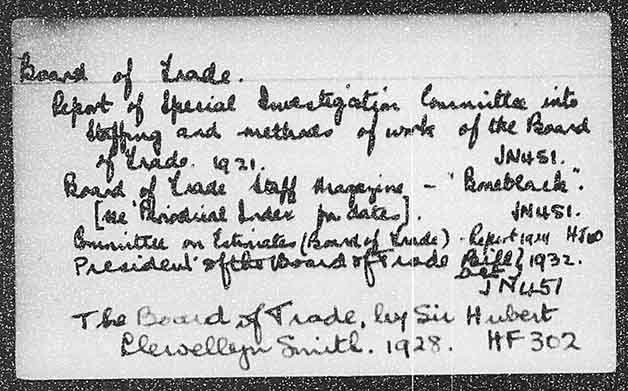 Board of Trade.
Report of Special Investigation Committee into
Staffing and methods of work of the Board
of Trade. 1921. JN451.
Board of Trade Staff Magazine - "Boneblack".
[See Periodical Index for dates]. JN451.
Committee on Estimates (Board of Trade) - Report
President of the Board of Trade Bill} 1932.
Act
JN451
The Board of Trade, by Sir Hubert
Llewellyn Smith. 1928. HF302